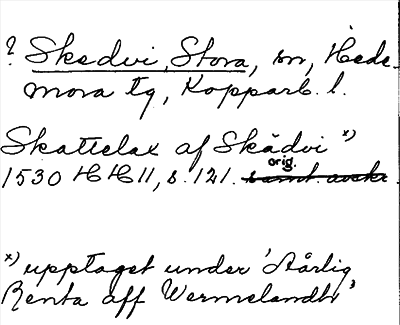 ? Skedvi, Stora, sn, Hede-
mora tg, Kopparb. l.
Skattelax af Skädvi x)
orig.
1530 HH 11, s. 121. samt. avskr.
x) upptaget under 'Aårlig
Renta aff Wermelandh'